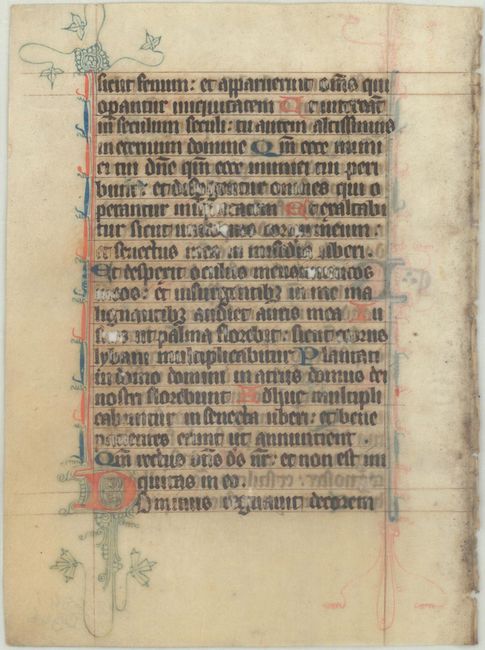 sicut fenum: et apparuerunt oms qui
operantur iniquitatem Ut intereat
in seculum seculi: tu autem altissimus
in eternum domine Qm ecce inimi
ci tui dne qm ecce inimici tui peri
bunt: et dispergentur omnes qui o
perantur iniquitatem Et exaltabi
tur sicut unicornis cornu meum:
et senectus mea in misericordia uberi.
Et despexit oculus meus inimicos
meos: et insurgentibz in me ma
lignantibz audiet auris mea Iu
stus ut palma florebit: sicut cedrus
lybani multiplicabitur Plantati
in domo domini in atriis domus dei
nostri florebunt Adhuc multipli
cabuntur in senecta uberi: et bene
pacientes erunt ut annuntient.
Qm rectus dns ds nr: et non est ini
quitas in eo.
Dominus regnavit decorem